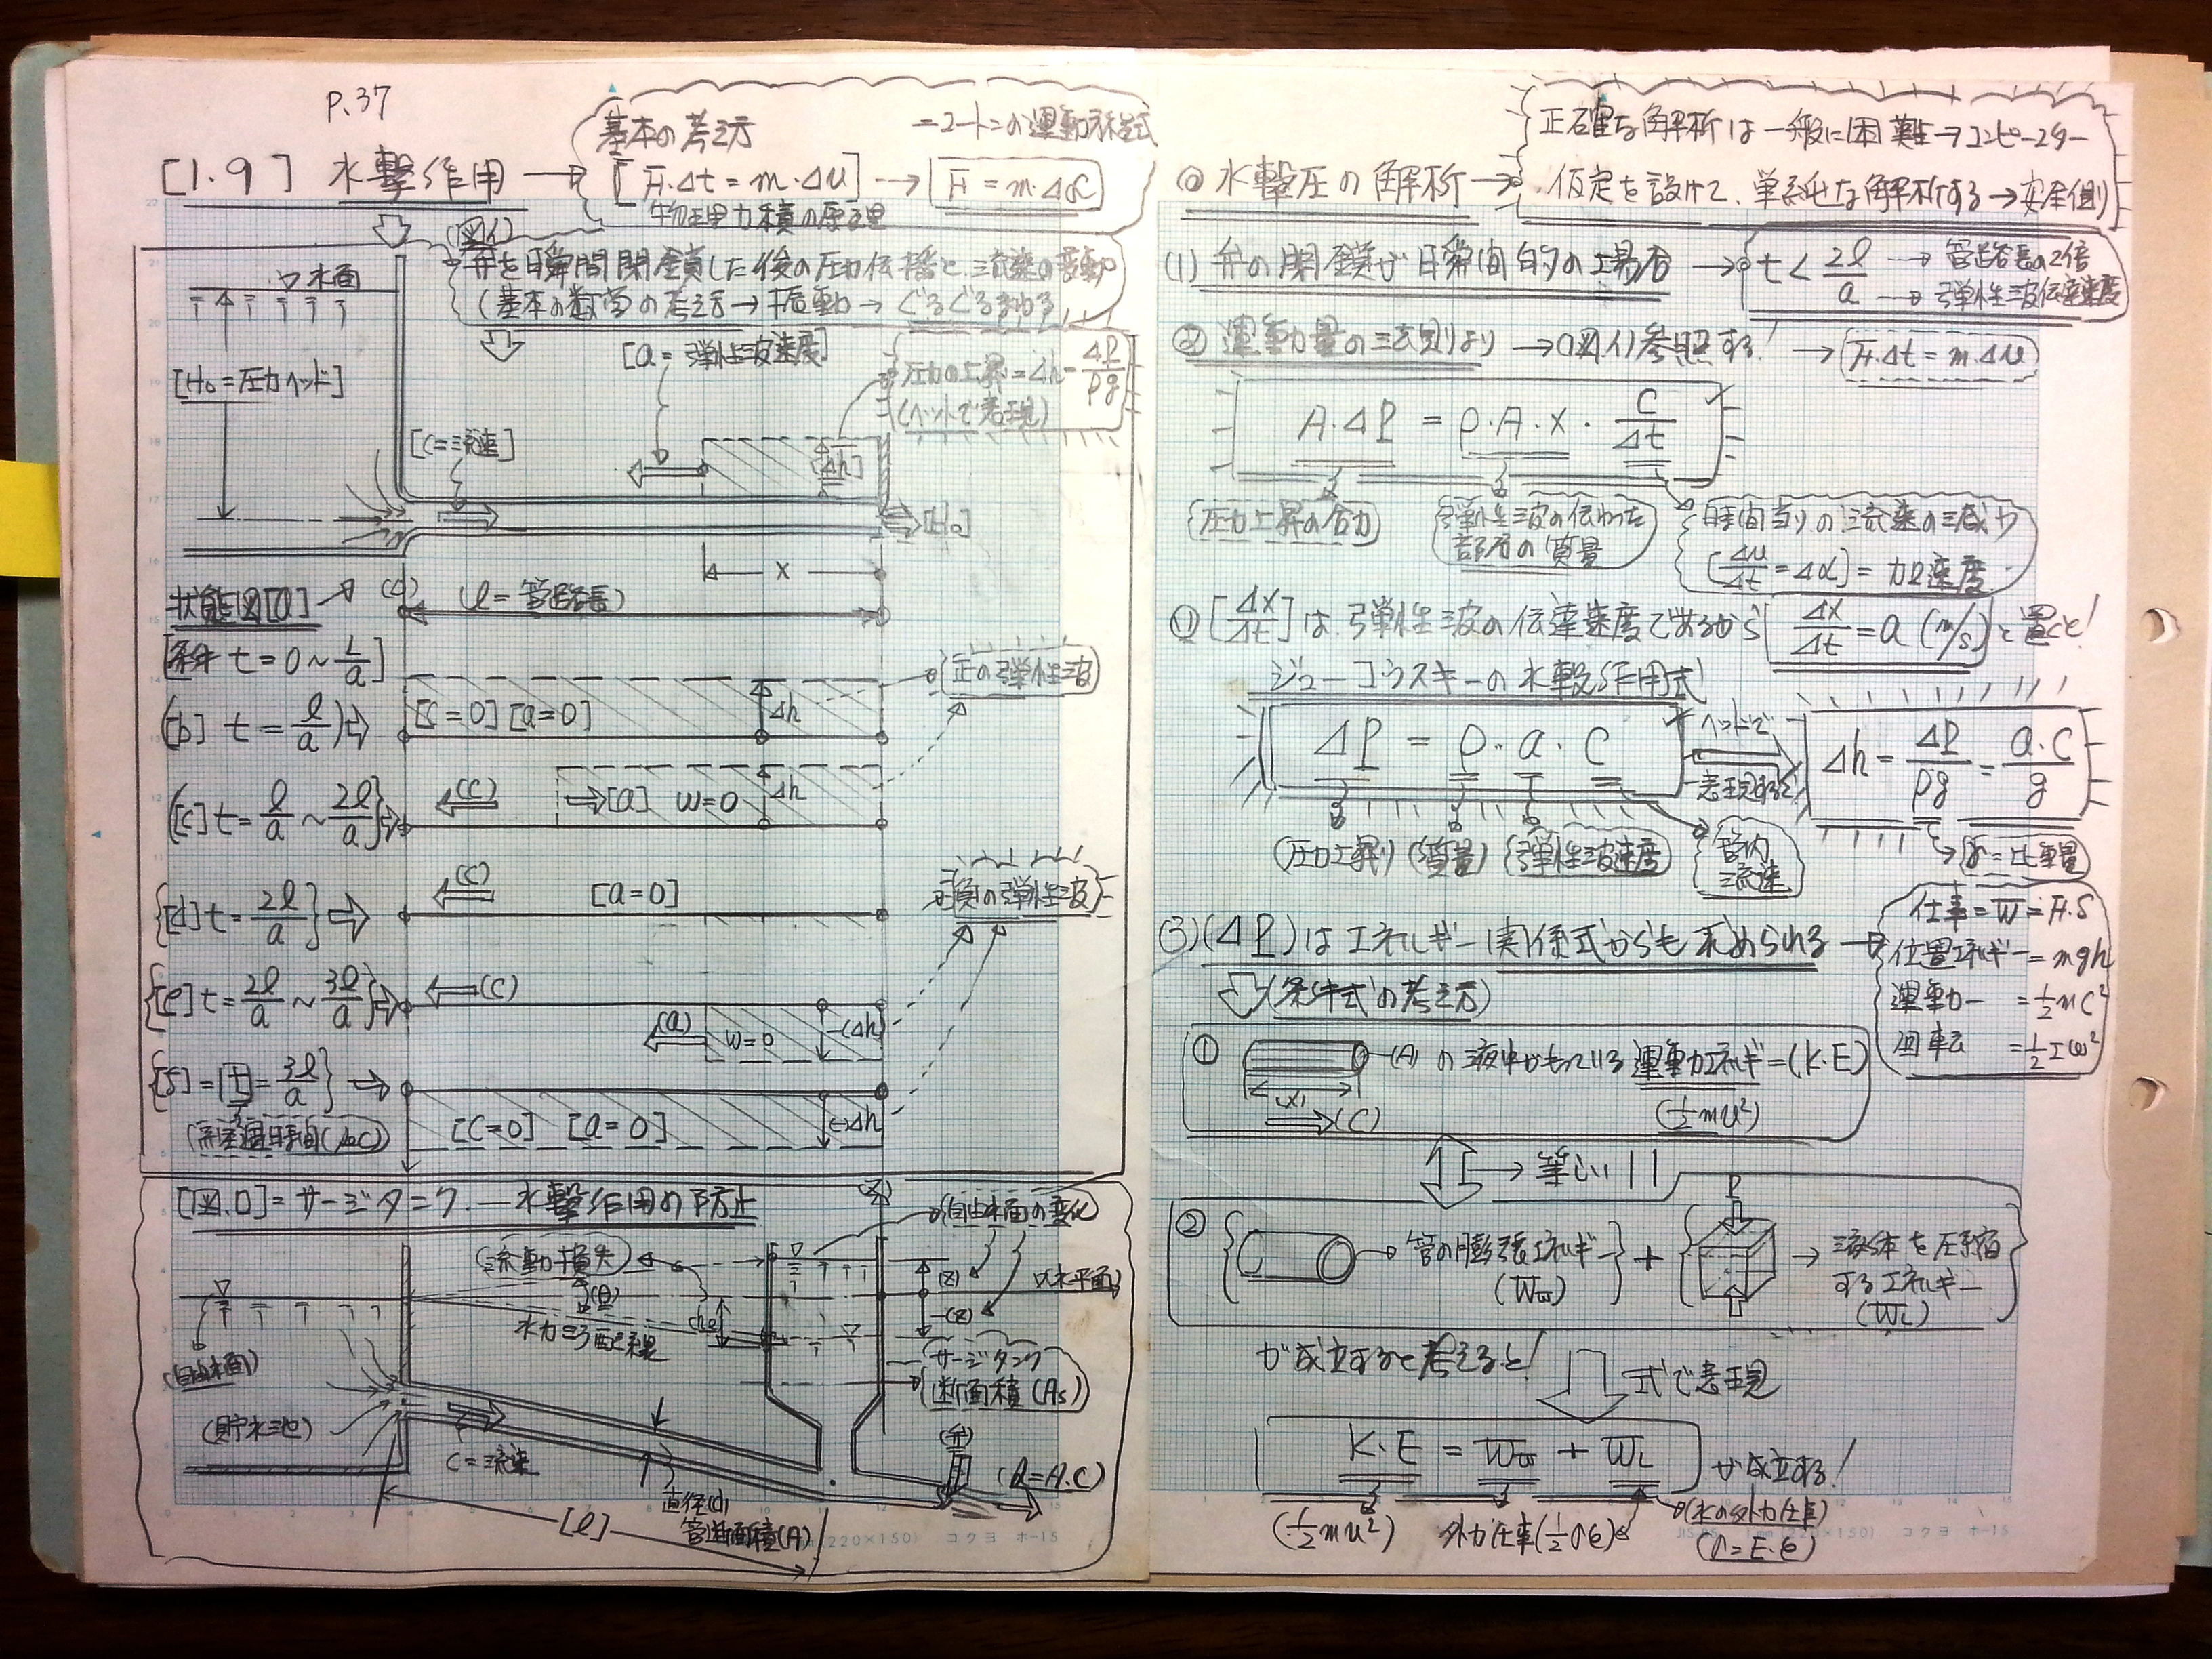 P.37
基本の考え方
=ニュートンの運動方程式
[1.9] 水撃作用 → [F・Δt = m・Δu] → F = m・Δα
物理力積の原理
(図イ)
弁を瞬間閉鎖した後の圧力伝播と流速の変動
(基本の数学の考え方→振動→ぐるぐるまわる)
水面
[a = 弾性波速度]
圧力の上昇=Δh=ΔP/ρg
(ヘッドで表現)
[H₀=圧力ヘッド]
[C=流速]
[Δh]
[H₀]
x
状態図[a]
(l=管路長)
[条件 t=0~L/a]
正の弾性波
[b] t = l/a
[C=0] [a=0]
Δh
[c] t = l/a ~ 2l/a
(C)
[a] w=0
Δh
[d] t = 2l/a
(C)
[a=0]
負の弾性波
[e] t = 2l/a ~ 3l/a
(C)
(a) w=0
-(Δh)
[f] = t = 3l/a
[C=0] [a=0]
(-)Δh
[図.ロ]=サージタンク―水撃作用の防止
自由水面の変化
流動損失
(θ)
水力勾配線
(z)
-(z)
水平面
(自由水面)
サージタンク
断面積(As)
(貯水池)
C=流速
(弁)
(Q=A.C)
直径(d)
管断面積(A)
[l]
(220×150) コクヨ ホ-15
正確な解析は一般に困難→コンピーュター
◎水撃圧の解析 → 仮定を設けて、単純な解析する→安全側
(1) 弁の閉鎖が瞬間的の場合 → t < 2l/a → 管路長の2倍
→ 弾性波伝達速度
② 運動量の法則より → (図イ)参照する! → F・Δt = m・Δu
A・ΔP = ρ・A・x・C/Δt
圧力上昇の合力
弾性波の伝わった
部分の質量
時間当りの流速の減少
[Δu/Δt = Δα] = 加速度
① [Δx/Δt]は弾性波の伝達速度であるから Δx/Δt = a (m/s) と置くと!
ジューコウスキーの水撃作用式
ΔP = ρ・a・C
ヘッドで
表現すると
Δh = ΔP/ρg = a・C/g
(圧力上昇) (質量) (弾性波速度)
管内
流速
γ=比重量
(3) (ΔP)はエネルギー関係式からも求められる
仕事=W=F.S
位置エネルギー=mgh
運動〃 =½mC²
回転 =½Iω²
(条件式の考え方)
① (A)の液中がもっている運動エネルギー=(K.E)
(x)
(C)
(½mu²)
→ 等しい
② 管の膨張エネルギー
(Wω)
+
P
液体を圧縮
するエネルギー
(WL)
が成立すると考えると!
式で表現
K・E = Wω + WL が成立する!
(½mu²)
外力仕事(½σε)
(水の外力仕事)
(σ=E・ε)
(220×150) コクヨ ホ-15